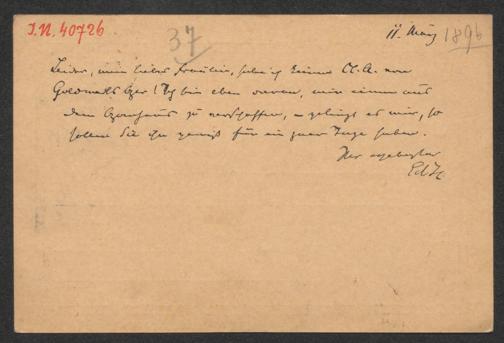 I.N. 40726
37
11. März 1896
Leider, mein liebes Fräulein, habe ich keinen Cl. A. von
Goldmarks Oper! Ich bin eben daran, mir einen aus
dem Opernhaus zu verschaffen, – gelingt es mir, so
sollen Sie ihn gewiß für ein paar Tage haben.
Ihr ergebenster
Ed H